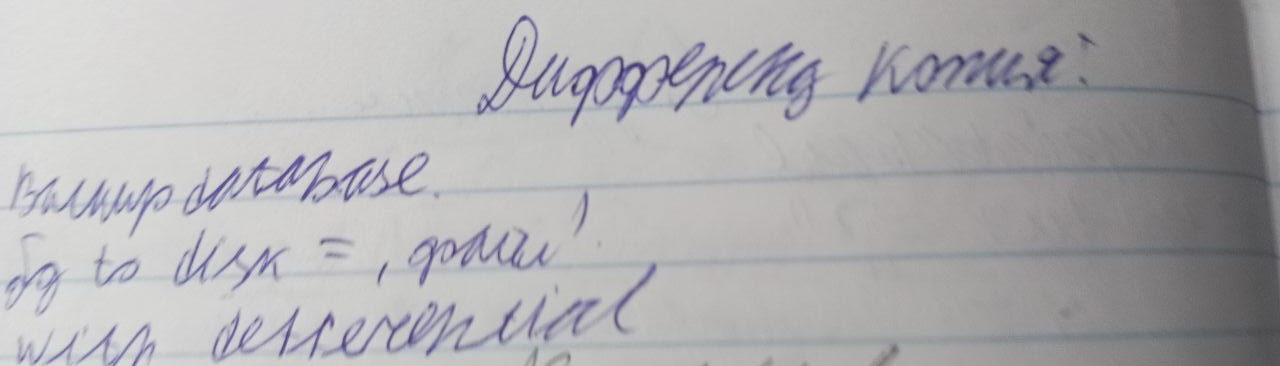 Дифференц копия:
Backup database.
бд to disk = 'файл'
with defferential